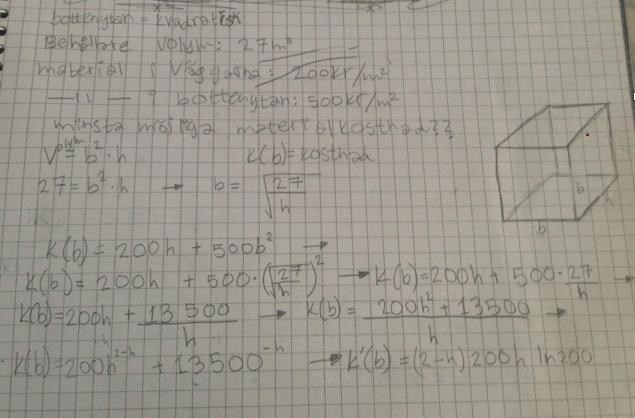 bottenytan = kvadratisk
Behållare volym: 27m³
material i väggarna: 200kr/m²
—11— i bottenytan: 500kr/m²
minsta möjliga materialkostnad??
Volym = b²·h K(b)=kostnad
27=b²·h → b=√(27/h)
b
h
b
K(b) = 200h + 500b² →
K(b) = 200h + 500·(√(27/h))² → K(b)=200h + 500·27/h →
K(b)=200h + 13 500/h → K(b) = (200h²+13500)/h →
K(b)=200h^(2-h) + 13500^(-h) → K'(b) = (2-h)200h ln200